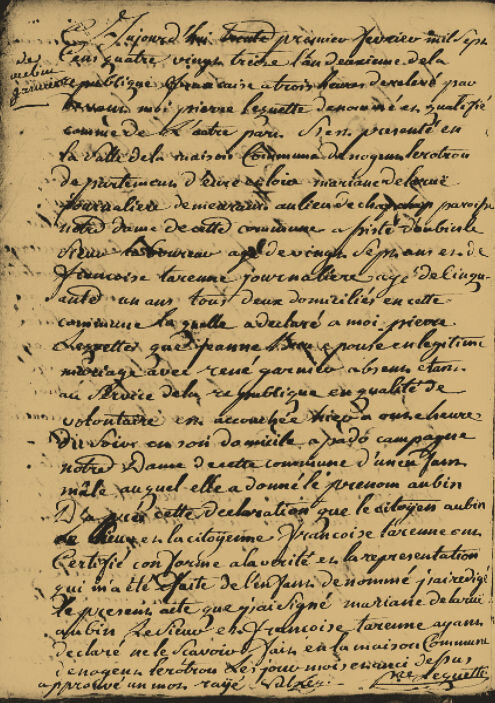 de
aubin
garnier
Aujourd'hui trente premier fevrier mil sept
Cens quatre vingt treize l'an deuxieme de la
republique francaise a trois heures de relevé par
devant moi pierre Lequette denommé en qualifié
comme de l'autre part s'est presenté en
la salle de la maison Commune de nogent lerotrou
departement d'eure et loir mariane delarue
journaliere demeurant au lieu de paroisse
notre dame de cette commune assisté d'aubin le
sieur laboureur agé de vingt sept ans et de
francoise tarenne journaliere agé de Cinqu-
ante un ans tous deux domiciliés en cette
commune laquelle a declaré a moi pierre
Lequette que jeanne epouse en legitime
mariage avec rené garnier absent etant
au service de la republique en qualité de
volontaire est accouchée hier a onze heure
du soir en son domicile a campagne
notre Dame de cette commune d'un enfant
mâle auquel elle a donné le prenom aubin
D'apres cette declaration que le citoyen aubin
le sieur et la citoyenne francoise tarenne ont
Certifié conforme a la verité et la representation
qui m'a été faite de l'enfant denommé j'ai redigé
le present acte que j'ai signé mariane delarue
aubin Lesieur et francoise tarenne ayant
declaré ne le scavoir fait en la maison Commune
de nogent lerotrou Le jour mois et an ci dessus
approuvé un mot rayé pre Lequette